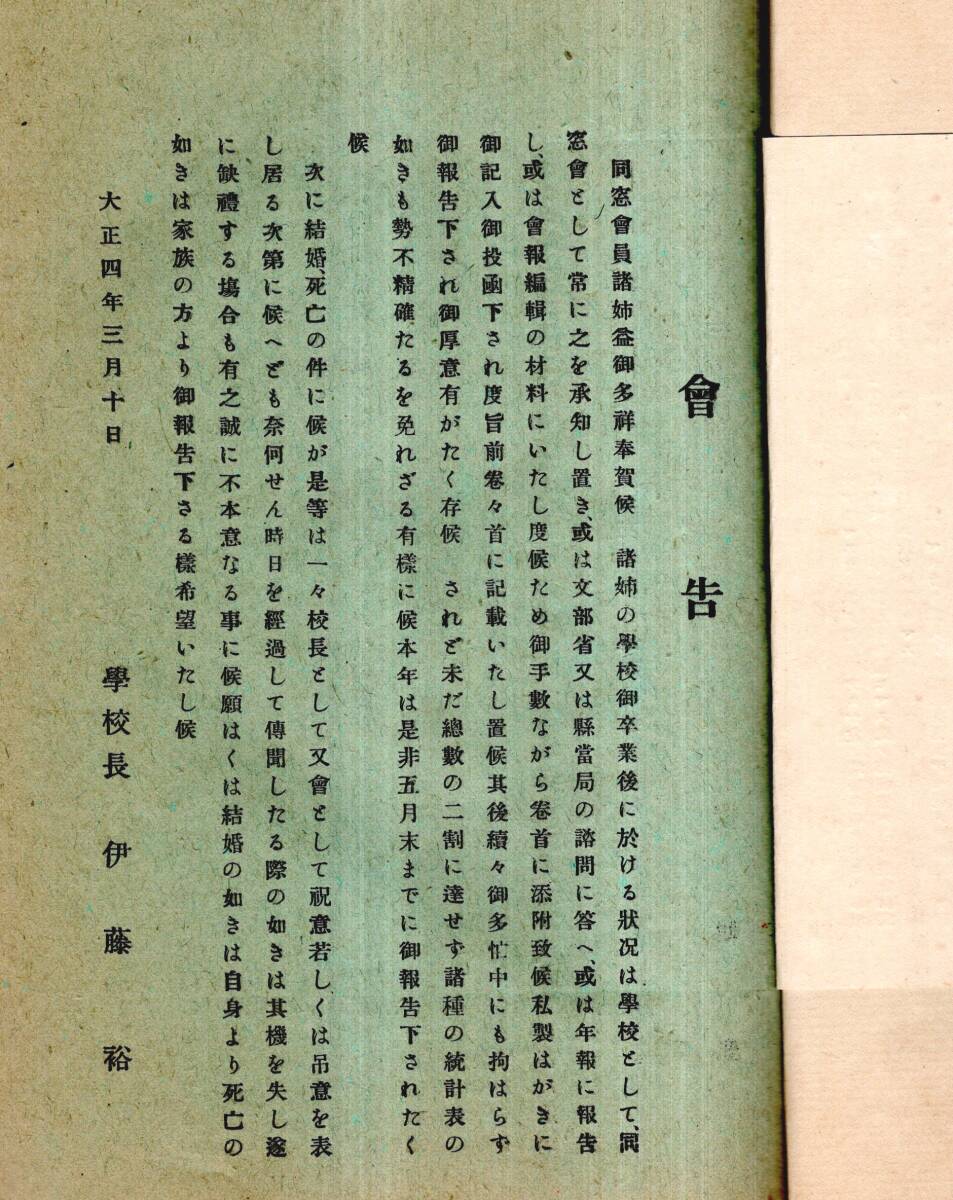 會告
同窓會員諸姉益御多祥奉賀候　諸姉の學校御卒業後に於ける狀况は學校として、同
窓會として常に之を承知し置き、或は文部省又は縣當局の諮問に答へ、或は年報に報告
し、或は會報編輯の材料にいたし度候ため御手數ながら卷首に添附致候私製はがきに
御記入御投函下され度旨前卷々首に記載いたし置候其後續々御多忙中にも拘はらず
御報告下され御厚意有がたく存候　されど未だ總數の二割に達せず諸種の統計表の
如きも勢不精確たるを免れざる有樣に候本年は是非五月末までに御報告下されたく
候
次に結婚、死亡の件に候が是等は一々校長として又會として祝意若しくは吊意を表
し居る次第に候へども奈何せん時日を經過して傳聞したる際の如きは其機を失し遂
に缺禮する塲合も有之誠に不本意なる事に候願はくは結婚の如きは自身より死亡の
如きは家族の方より御報告下さる樣希望いたし候
大正四年三月十日
學校長　伊藤　裕